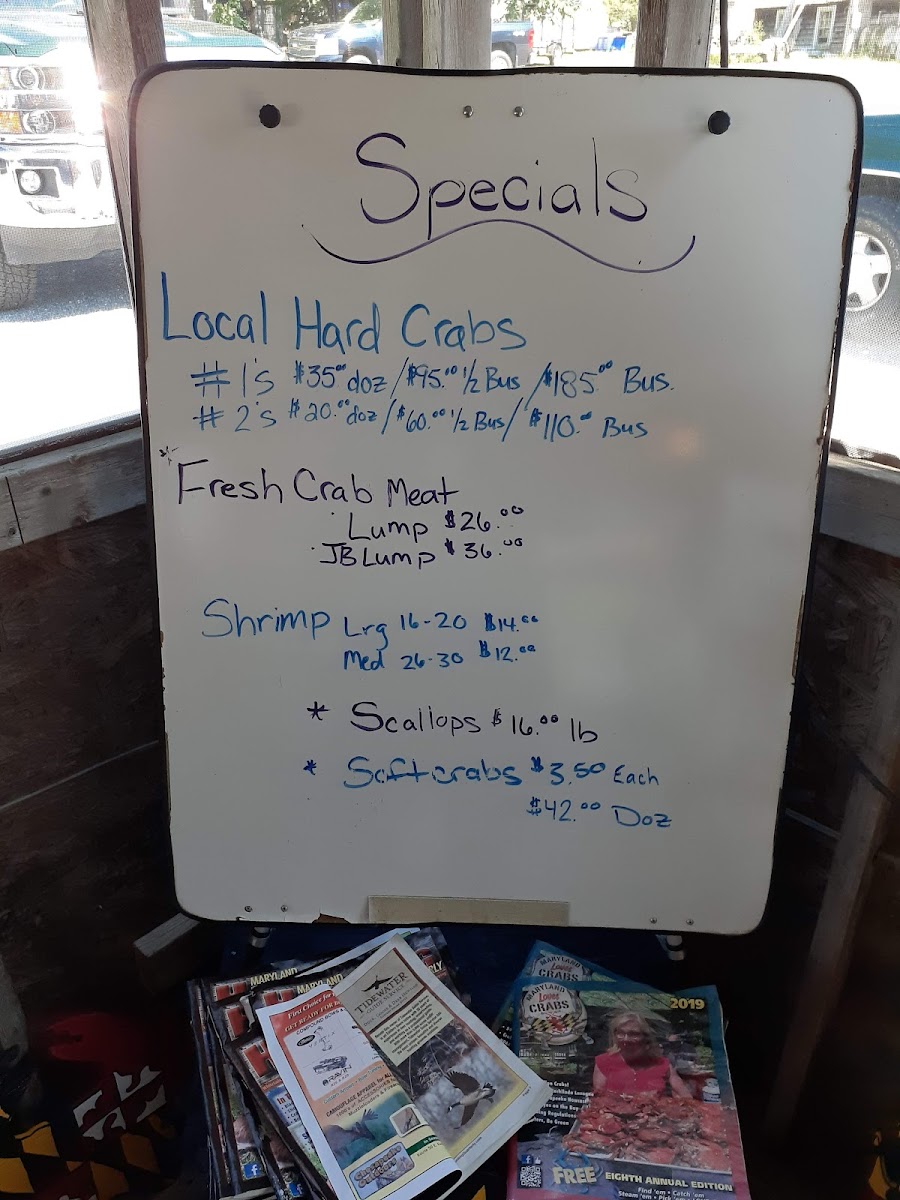 Specials
Local Hard Crabs
# 1's $35.00 doz / $95.00 1/2 Bus / $185.00 Bus.
# 2's $20.00 doz / $60.00 1/2 Bus / $110.00 Bus
* Fresh Crab Meat
Lump $26.00
JB Lump $36.00
Shrimp Lrg 16-20 $14.00
Med 26-30 $12.00
* Scallops $16.00 lb
* Softcrabs $3.50 Each
$42.00 Doz
MARYLAND
MARYLAND
First Choice for
GET READY FOR
COMPOUND BOWS
RAVIN
CAMOUFLAGE APPAREL for ALL
TIDEWATER
MARYLAND
Loves
CRABS
MARYLAND
Loves
CRABS
2019
FREE EIGHTH ANNUAL EDITION
Find 'em • Catch 'em
Steam 'em • Pick 'em